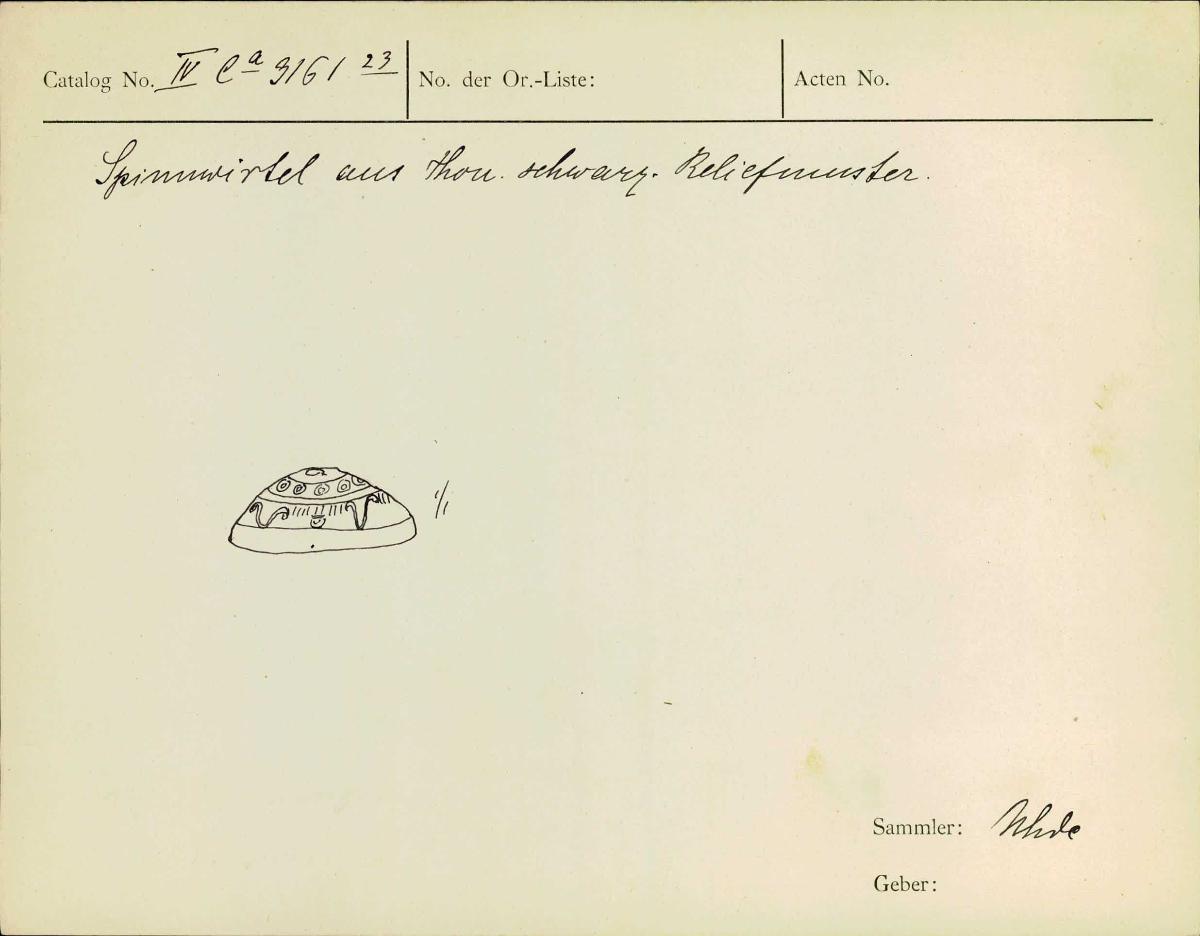 Catalog No. IV Ca 3161 23 No. der Or.-Liste: Acten No.
Spinnwirtel aus Thon. schwarz. Reliefmuster.
1/1
Sammler: Uhde
Geber: